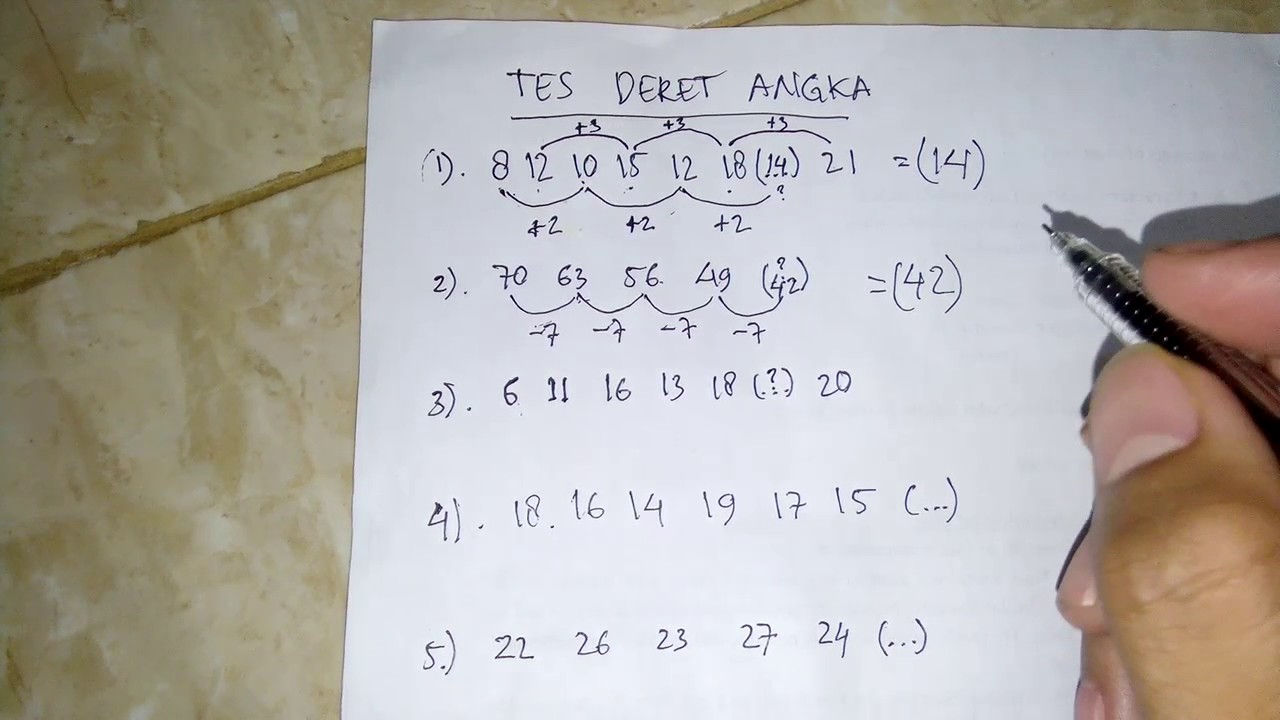 TES DERET ANGKA
+3 +3 +3
(1). 8 12 10 15 12 18 (14) 21 = (14)
?
+2 +2 +2
?
2). 70 63 56 49 (42) = (42)
-7 -7 -7 -7
3). 6 11 16 13 18 (?) 20
4). 18. 16 14 19 17 15 (...)
5.) 22 26 23 27 24 (...)